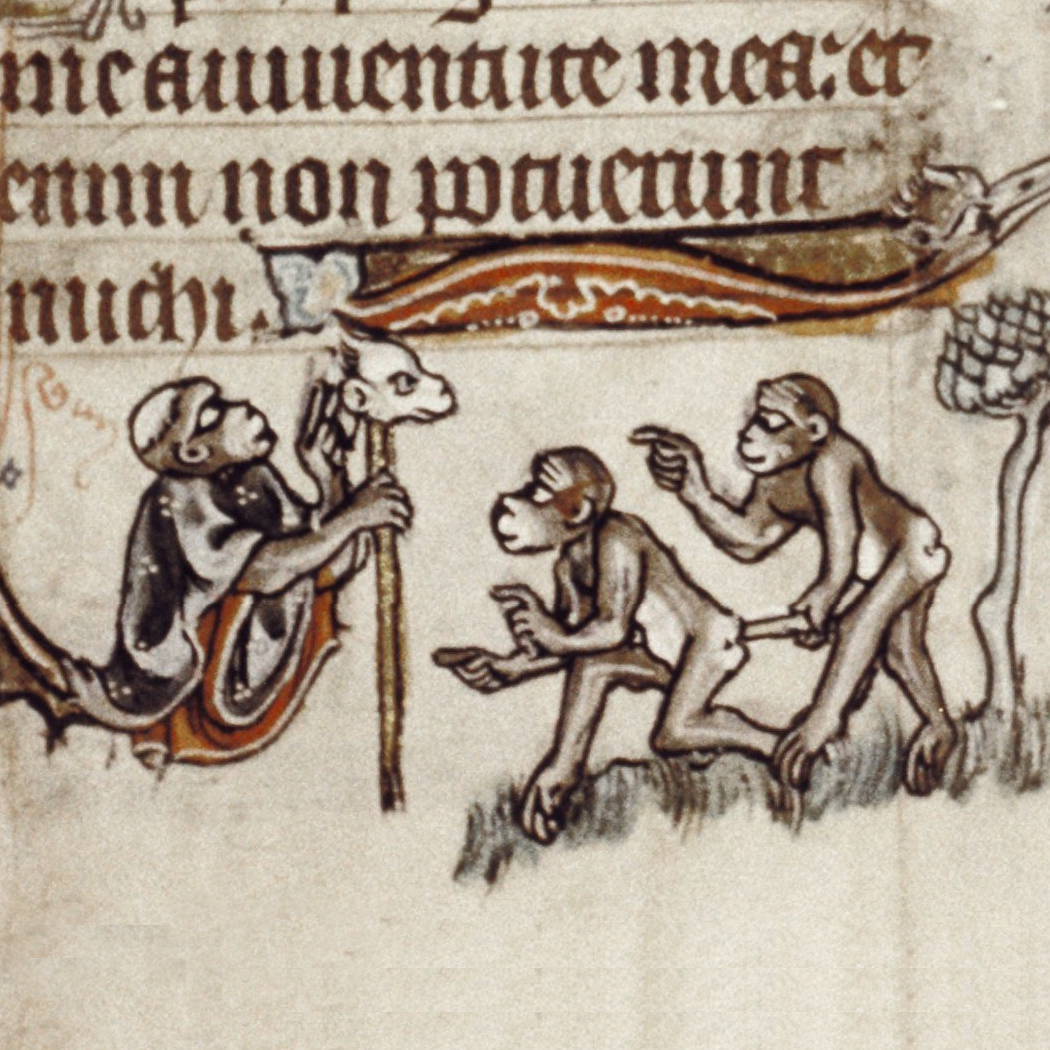 me a iuuentute mea: et
enim non potuerunt
michi.